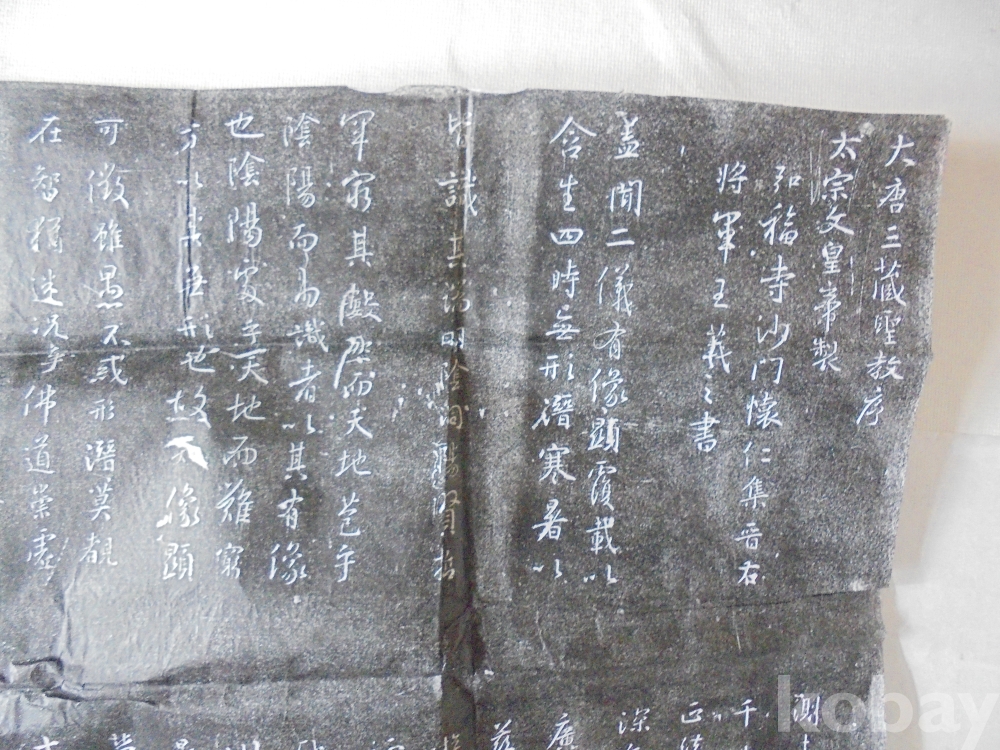 大唐三藏聖教序
太宗文皇帝製
弘福寺沙門懷仁集晉右
將軍王羲之書
蓋聞二儀有像顯覆載以
含生四時無形潛寒暑以
皆識其端明陰洞陽賢哲
罕窮其數然而天地苞乎
陰陽而易識者以其有像
也陰陽處乎天地而難窮
者以其無形也故知像顯
可徵雖愚不惑形潛莫覩
在智猶迷況乎佛道崇虛
測
千
正
深
廣
kobay